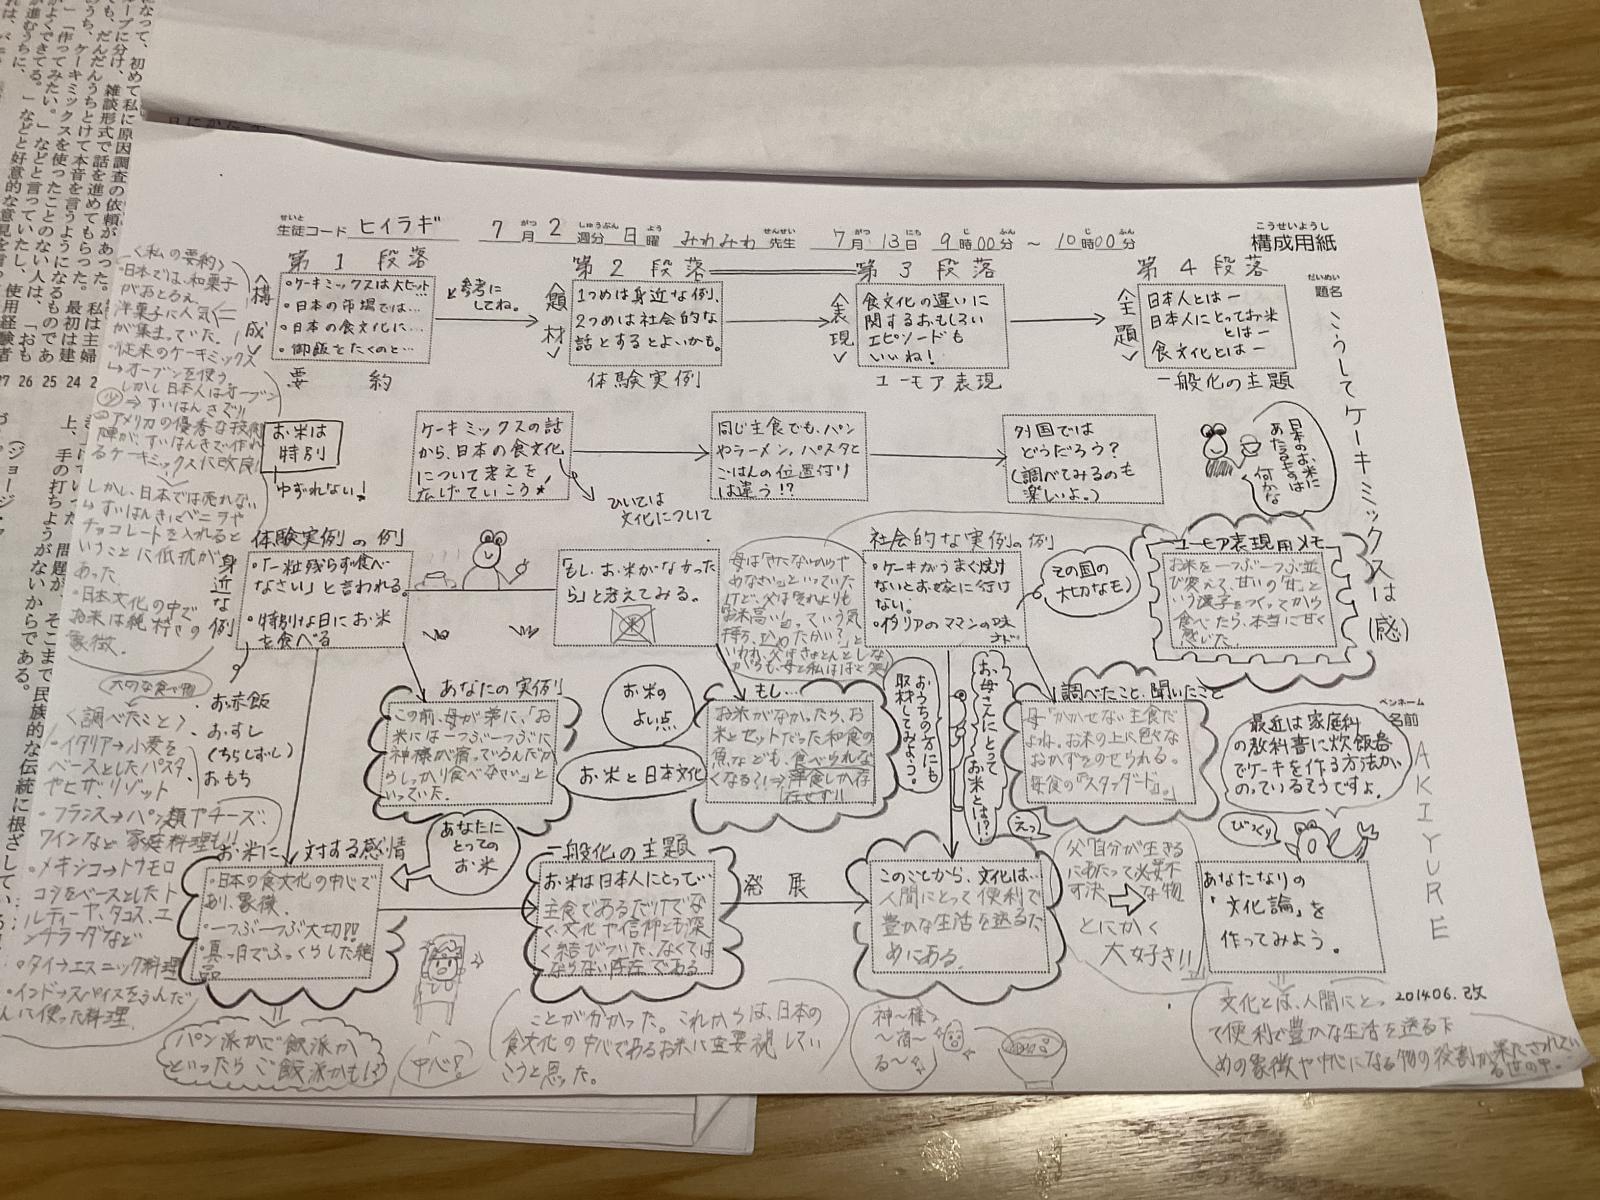 構成用紙
こうせいようし
せいと
生徒コード ヒイラギ
7月2週分 日曜 みわみわ先生 7月13日 9時00分 ～ 10時00分
だいめい
題名 こうしてケーキミックスは(感)
ペンネーム
名前 AKIYURE
第1段落
第2段落
第3段落
第4段落
<構成>
・ケーキミックスは大ヒット…
・日本の市場では…
・日本の食文化に…
・御飯をたくのと…
要約
参考に
してね。
<題材>
1つめは身近な例、
2つめは社会的な
話とするとよいかも。
体験実例
<表現>
食文化の違いに
関するおもしろい
エピソードも
いいね！
ユーモア表現
<主題>
日本人とはー
日本人にとってお米
とはー
食文化とはー
一般化の主題
お米は
特別
ゆずれない！
ケーキミックスの話
から、日本の食文化
について考えを
広げていこう
ひいては
文化について
同じ主食でも、パン
やラーメン、パスタと
ごはんの位置付け
は違う!?
外国では
どうだろう？
(調べてみるのも
楽しいよ。)
日本のお米に
あたるものは
何かな
<私の要約>
・日本では、和菓子
がおとろえ、
洋菓子に人気
が集まっていた。
・従来のケーキミックス
→オーブンを使う
しかし日本人はオーブン
少 ⇒すいはんきで!!
アメリカの優秀な技術
陣が、すいはんきで作れ
るケーキミックスに改良
しかし、日本では売れない
すいはんきにバニラや
チョコレートを入れると
いうことに低抗が
あった。
・日本文化の中で
お米は純粋さの
象徴.
身近な例
体験実例の例
・「一粒残らず食べ
なさい」と言われる。
・特別な日にお米
を食べる
お赤飯
おすし
(ちらしずし)
おもち
「もし、お米がなかった
ら」と考えてみる。
社会的な実例の例
・ケーキがうまく焼け
ないとお嫁に行け
ない。
・イタリアのママンの味
など
その国の
大切なもの
ユーモア表現用メモ
お米を一つぶ一つぶ並
び変えて、「甘い」の「甘」と
いう漢字をつくってから
食べたら、本当に甘く
感じた。
母は「きたないからや
めなさい」といっていた
けど、父は
いわれ、父はきょとんとしな
がらも、母と私は
あなたの実例
この前、母が弟に、「お
米には一つぶ一つぶに
神様が宿っているんだか
らしっかり食べなさい」と
いっていた。
お米の
よい点
お米と日本文化
もし…
お米がなかったら、お
米とセットだった和食の
魚なども、食べられな
くなる?!⇒洋食しか存
在せず!!
おうちの方にも
取材してみよう。
お母さんにとって
お米とは？
調べたこと、聞いたこと
母「かかせない主食だ
よね。お米の上に色々な
おかずをのせられる。
毎食の『スタンダード』」。
最近は家庭科
の教科書に炊飯器
でケーキを作る方法が
のっているそうですよ。
びっくり
えっ
大切な食べ物
<調べたこと>
・イタリア→小麦を
ベースとしたパスタ
やピザ・リゾット
・フランス→パン類やチーズ、
ワインなど 家庭料理も!!
・メキシコ→トウモロ
コシをベースとしたト
ルティーヤ、タコス、エ
ンチラーダなど
・タイ→エスニック料理
・インド→スパイスをふんだ
んに使った料理.
お米に対する感情
・日本の食文化の中心で
あり、象徴。
・一つぶ一つぶ大切!!
・真っ白でふっくらした絶
品
あなたに
とっての
お米
一般化の主題
お米は日本人にとって…
主食であるだけでな
く、文化や信仰とも深
く結びついた、なくては
ならない存在である
発展
このことから、文化は…
人間にとって便利で
豊かな生活を送るた
めにある。
父「自分が生きる
にあたって必要不
可決な物
とにかく
大好き!!
あなたなりの
「文化論」を
作ってみよう。
パン派かご飯派か
といったらご飯派かも！
中心？
ことが分かった。これからは、日本の
食文化の中心であるお米に重要視してい
こうと思った。
神～様～
～宿～
る～
201406.改
文化とは、人間にとっ
て便利で豊かな生活を送るた
めの象徴や中心になる物の役割が果たされてい
る世の中.
になって、初めて私に原因調査の依頼があった。私は主婦
ループに分け、雑談形式で話を進めてもらった。最初は建
でも、だんだんうちとけて本音を言うようになるものであ
うち、ケーキミックスを使ったことのない人は、「おも
」「作ってみたい。」などと言っていたし、使用経験者
がよくできてる。」などと好意的な意見を言っ
が進むうちに、
27 26 25 24
上、手の打ちようがないからである。
問題が、そこまで民族的な伝統に根ざしてい
(ジョージ・